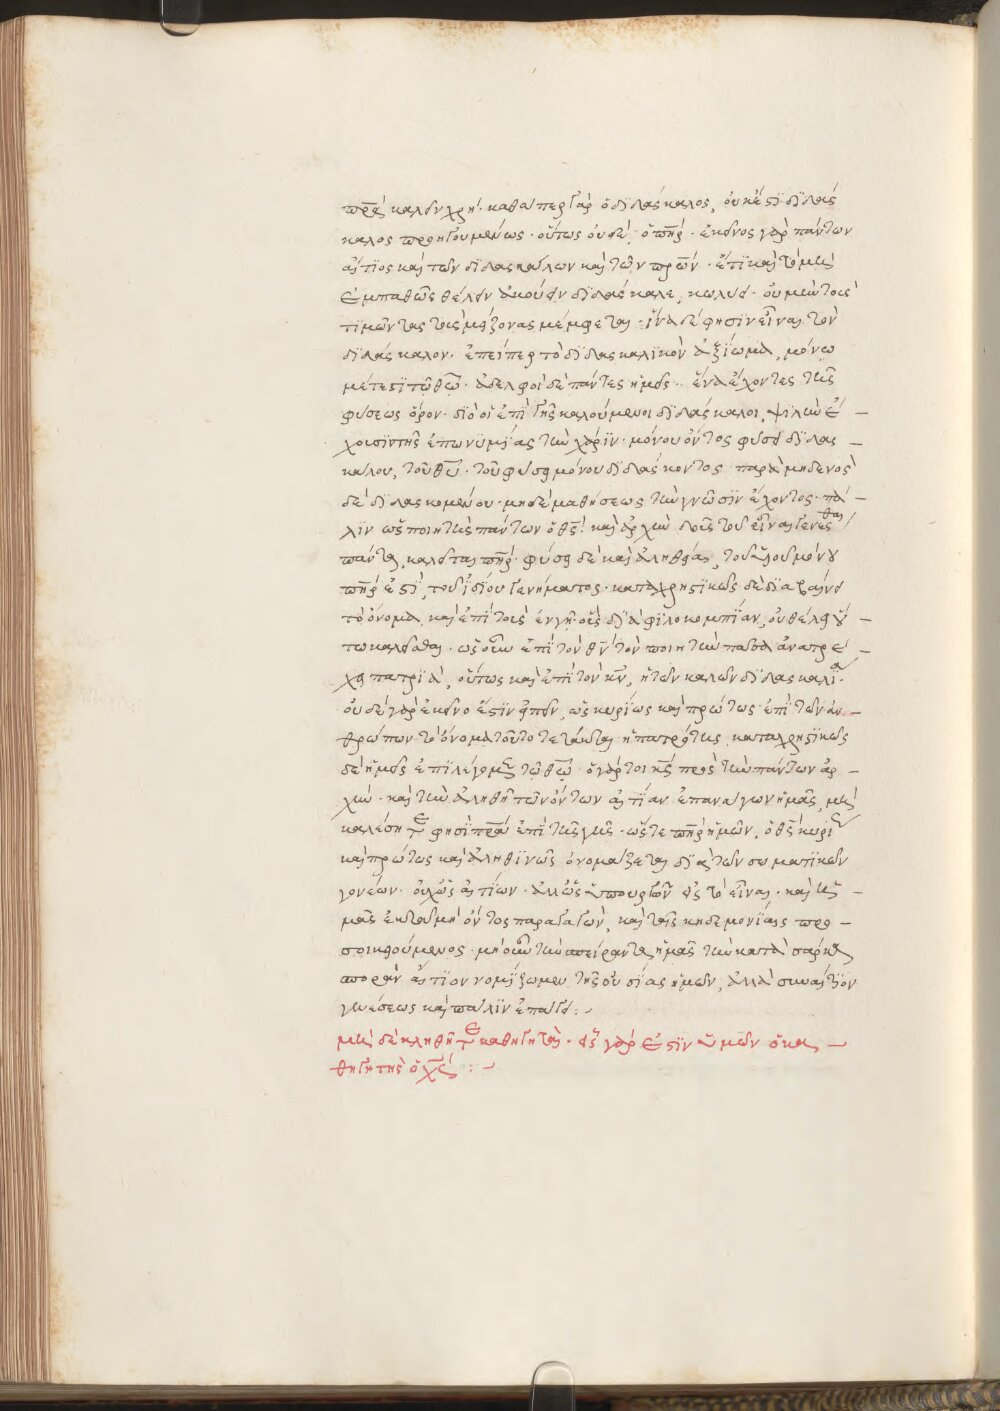 πρ̅α καλεῖν χρή· καθάπερ γὰρ ὁ διδάσκαλος, οὐκ ἔστι διδάσ
καλος προηγουμένως· οὕτως οὐδὲ, ὁ πη̅ρ· ἐκεῖνος γὰρ πάντων
αἴτιος καὶ τῶν διδασκάλων καὶ τῶν πρ̅ων· ἔτι καὶ τὸ μὴ
ἐμπαθῶς θέλειν ἀκούειν διδάσκαλε, κωλύει· οὐ μὴν τοὺς
τιμῶντας τοὺς μείζονας μέμφεται· ἕνα δέ φησιν εἶναι τὸν
διδάσκαλον· ἐπείπερ τὸ διδασκαλικὸν ἀξίωμα, μόνω
μέτεστι τῶ θω̅· ἀδελφοὶ δὲ πάντες ἡμεῖς· ἕνα ἔχοντες τῆς
φύσεως ὅρον· διὸ οἱ ἐπὶ γῆς καλούμενοι διδάσκαλοι, ψιλὴν ἔ –
χουσιν τῆς ἐπωνυμίας τὴν χάριν· μόνου ὄντος φύσει διδασ –
κάλου, τοῦ θυ̅· τοῦ φύσει μόνου διδάσκοντος· παρὰ μηδενὸς
δὲ διδασκομένου· μηδὲ μαθήσεως τὴν γνῶσιν ἔχοντος· πά –
λιν ὡς ποιητὴς πάντων ὁ θς̅· καὶ ἀρχὴν δοὺς τοῦ εἶναι γενέσθαι
πάντα, καλεῖται πη̅ρ· φύσει δὲ καὶ ἀληθείαι, τοῦ υἱοῦ μόνου
πη̅ρ ἐστί, τοῦ ἰδίου γενήματος· καταχρηστικῶς δὲ διαβαίνει
τὸ ὄνομα, καὶ ἐπὶ τοὺς ἐν γῆ· οὓς διὰ φιλοκομπίαν, οὐ θέλει οὕ –
τω καλεῖσθαι· ὡς οὖν ἐπὶ τὸν θν̅ τὸν ποιητὴν πᾶσα ἀνατρέ –
χει πατριὰ, οὕτως καὶ ἐπὶ τὸν κν̅, ἡ τῶν καλῶν διδασκαλία·
οὐδὲ γὰρ ἐκεῖνο ἔστιν εἰπεῖν, ὡς κυρίως καὶ πρώτως ἐπὶ τῶν ἀν –
θρώπων τὸ ὄνομα τοῦτο τετάχθαι ἡ πατρότης, καταχρηστικῶς
δὲ ἡμεῖς ἐπιλέγομεν τῶ θω̅· ὁ γάρ τοι κς̅ πρὸς τὴν πάντων ἀρ –
χὴν· καὶ τὴν ἀληθῆ τῶν ὄντων αἰτίαν ἐπανάγων ἡμᾶς, μὴ
καλέσητε φησὶ πρ̅α ἐπὶ τῆς γῆς· ὥστε πη̅ρ ἡμῶν, ὁ θς̅ κυρίως
καὶ πρώτως καὶ ἀληθινῶς ὀνομάζεται διὰ τῶν σωματικῶν
γονέων· οὐχ ὡς αἰτίων· ἀλλ' ὡς ὑπουργῶν εἰς τὸ εἶναι· καὶ ἡ –
μᾶς ἐκ τοῦ μὴ ὄντος παραγαγών, καὶ ταῖς κηδεμονίαις προσ –
οικειούμενος· μὴ οὖν τὴν σπείραντα ἡμᾶς τὴν κατὰ σάρκα
σπορὰν αἴτιον νομίζωμεν τῆς οὐσίας ἡμῶν, ἀλλὰ συναίτιον
γενέσεως καὶ πάλιν ἐπάγει: –
μὴ δὲ κληθῆτε καθηγηταὶ· εἷς γὰρ ἐστὶν ὑμῶν ὁ κα –
θηγητὴς ὁ χς̅: –